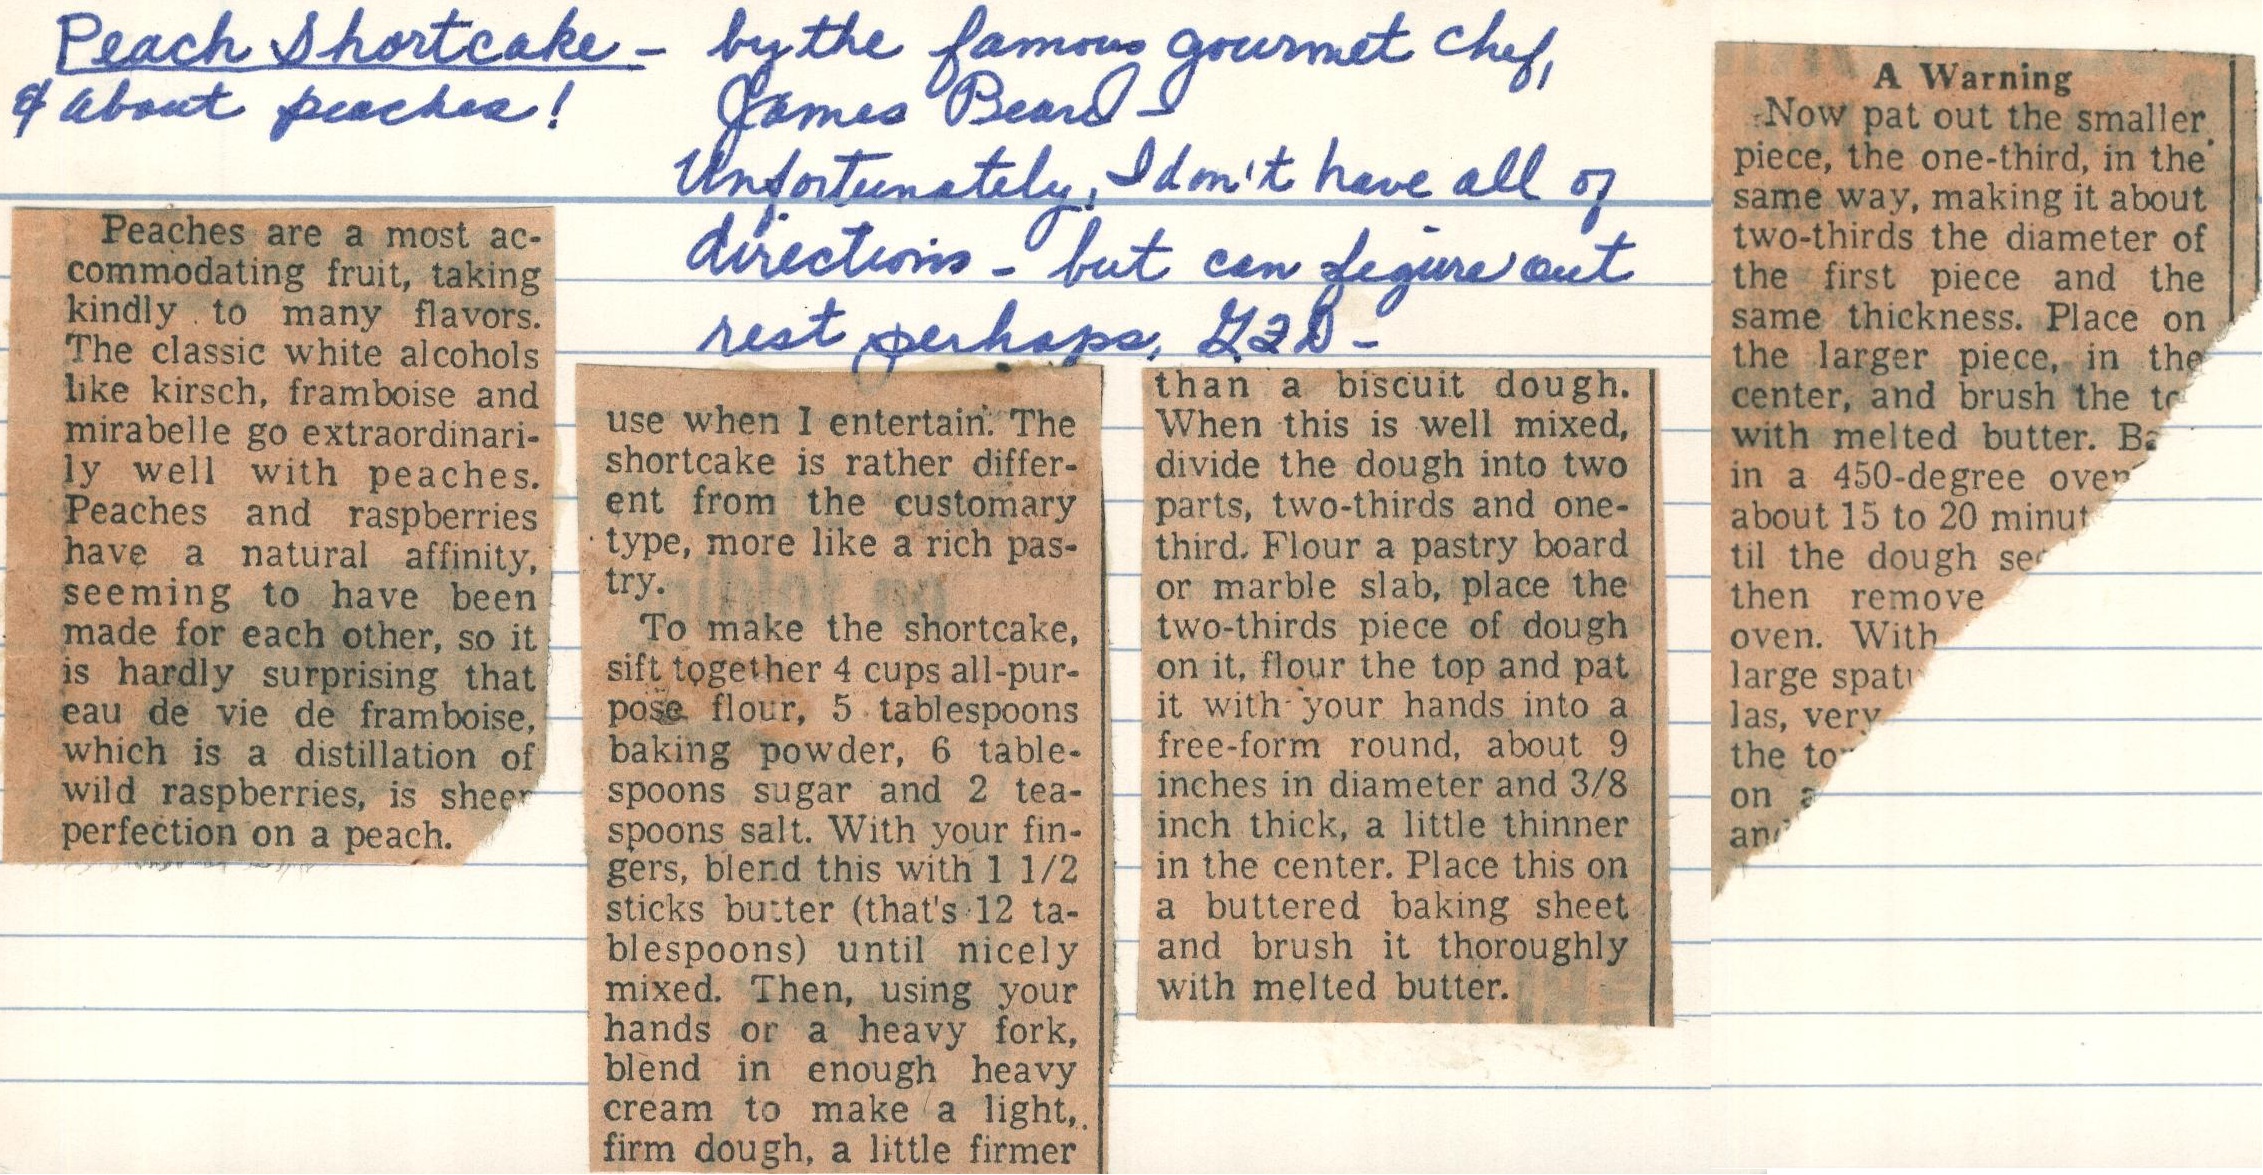 Peach Shortcake - by the famous gourmet chef,
& about peaches! James Beard -
Unfortunately, I don't have all of
directions - but can figure out
rest perhaps.
Peaches are a most ac-
commodating fruit, taking
kindly to many flavors.
The classic white alcohols
like kirsch, framboise and
mirabelle go extraordinari-
ly well with peaches.
Peaches and raspberries
have a natural affinity,
seeming to have been
made for each other, so it
is hardly surprising that
eau de vie de framboise,
which is a distillation of
wild raspberries, is sheer
perfection on a peach.
use when I entertain. The
shortcake is rather differ-
ent from the customary
type, more like a rich pas-
try.
To make the shortcake,
sift together 4 cups all-pur-
pose flour, 5 tablespoons
baking powder, 6 table-
spoons sugar and 2 tea-
spoons salt. With your fin-
gers, blend this with 1 1/2
sticks butter (that's 12 ta-
blespoons) until nicely
mixed. Then, using your
hands or a heavy fork,
blend in enough heavy
cream to make a light,
firm dough, a little firmer
than a biscuit dough.
When this is well mixed,
divide the dough into two
parts, two-thirds and one-
third. Flour a pastry board
or marble slab, place the
two-thirds piece of dough
on it, flour the top and pat
it with your hands into a
free-form round, about 9
inches in diameter and 3/8
inch thick, a little thinner
in the center. Place this on
a buttered baking sheet
and brush it thoroughly
with melted butter.
A Warning
Now pat out the smaller
piece, the one-third, in the
same way, making it about
two-thirds the diameter of
the first piece and the
same thickness. Place on
the larger piece, in the
center, and brush the
with melted butter.
in a 450-degree oven
about 15 to 20
til the dough
then remove
oven. With
large
las, very
the
on